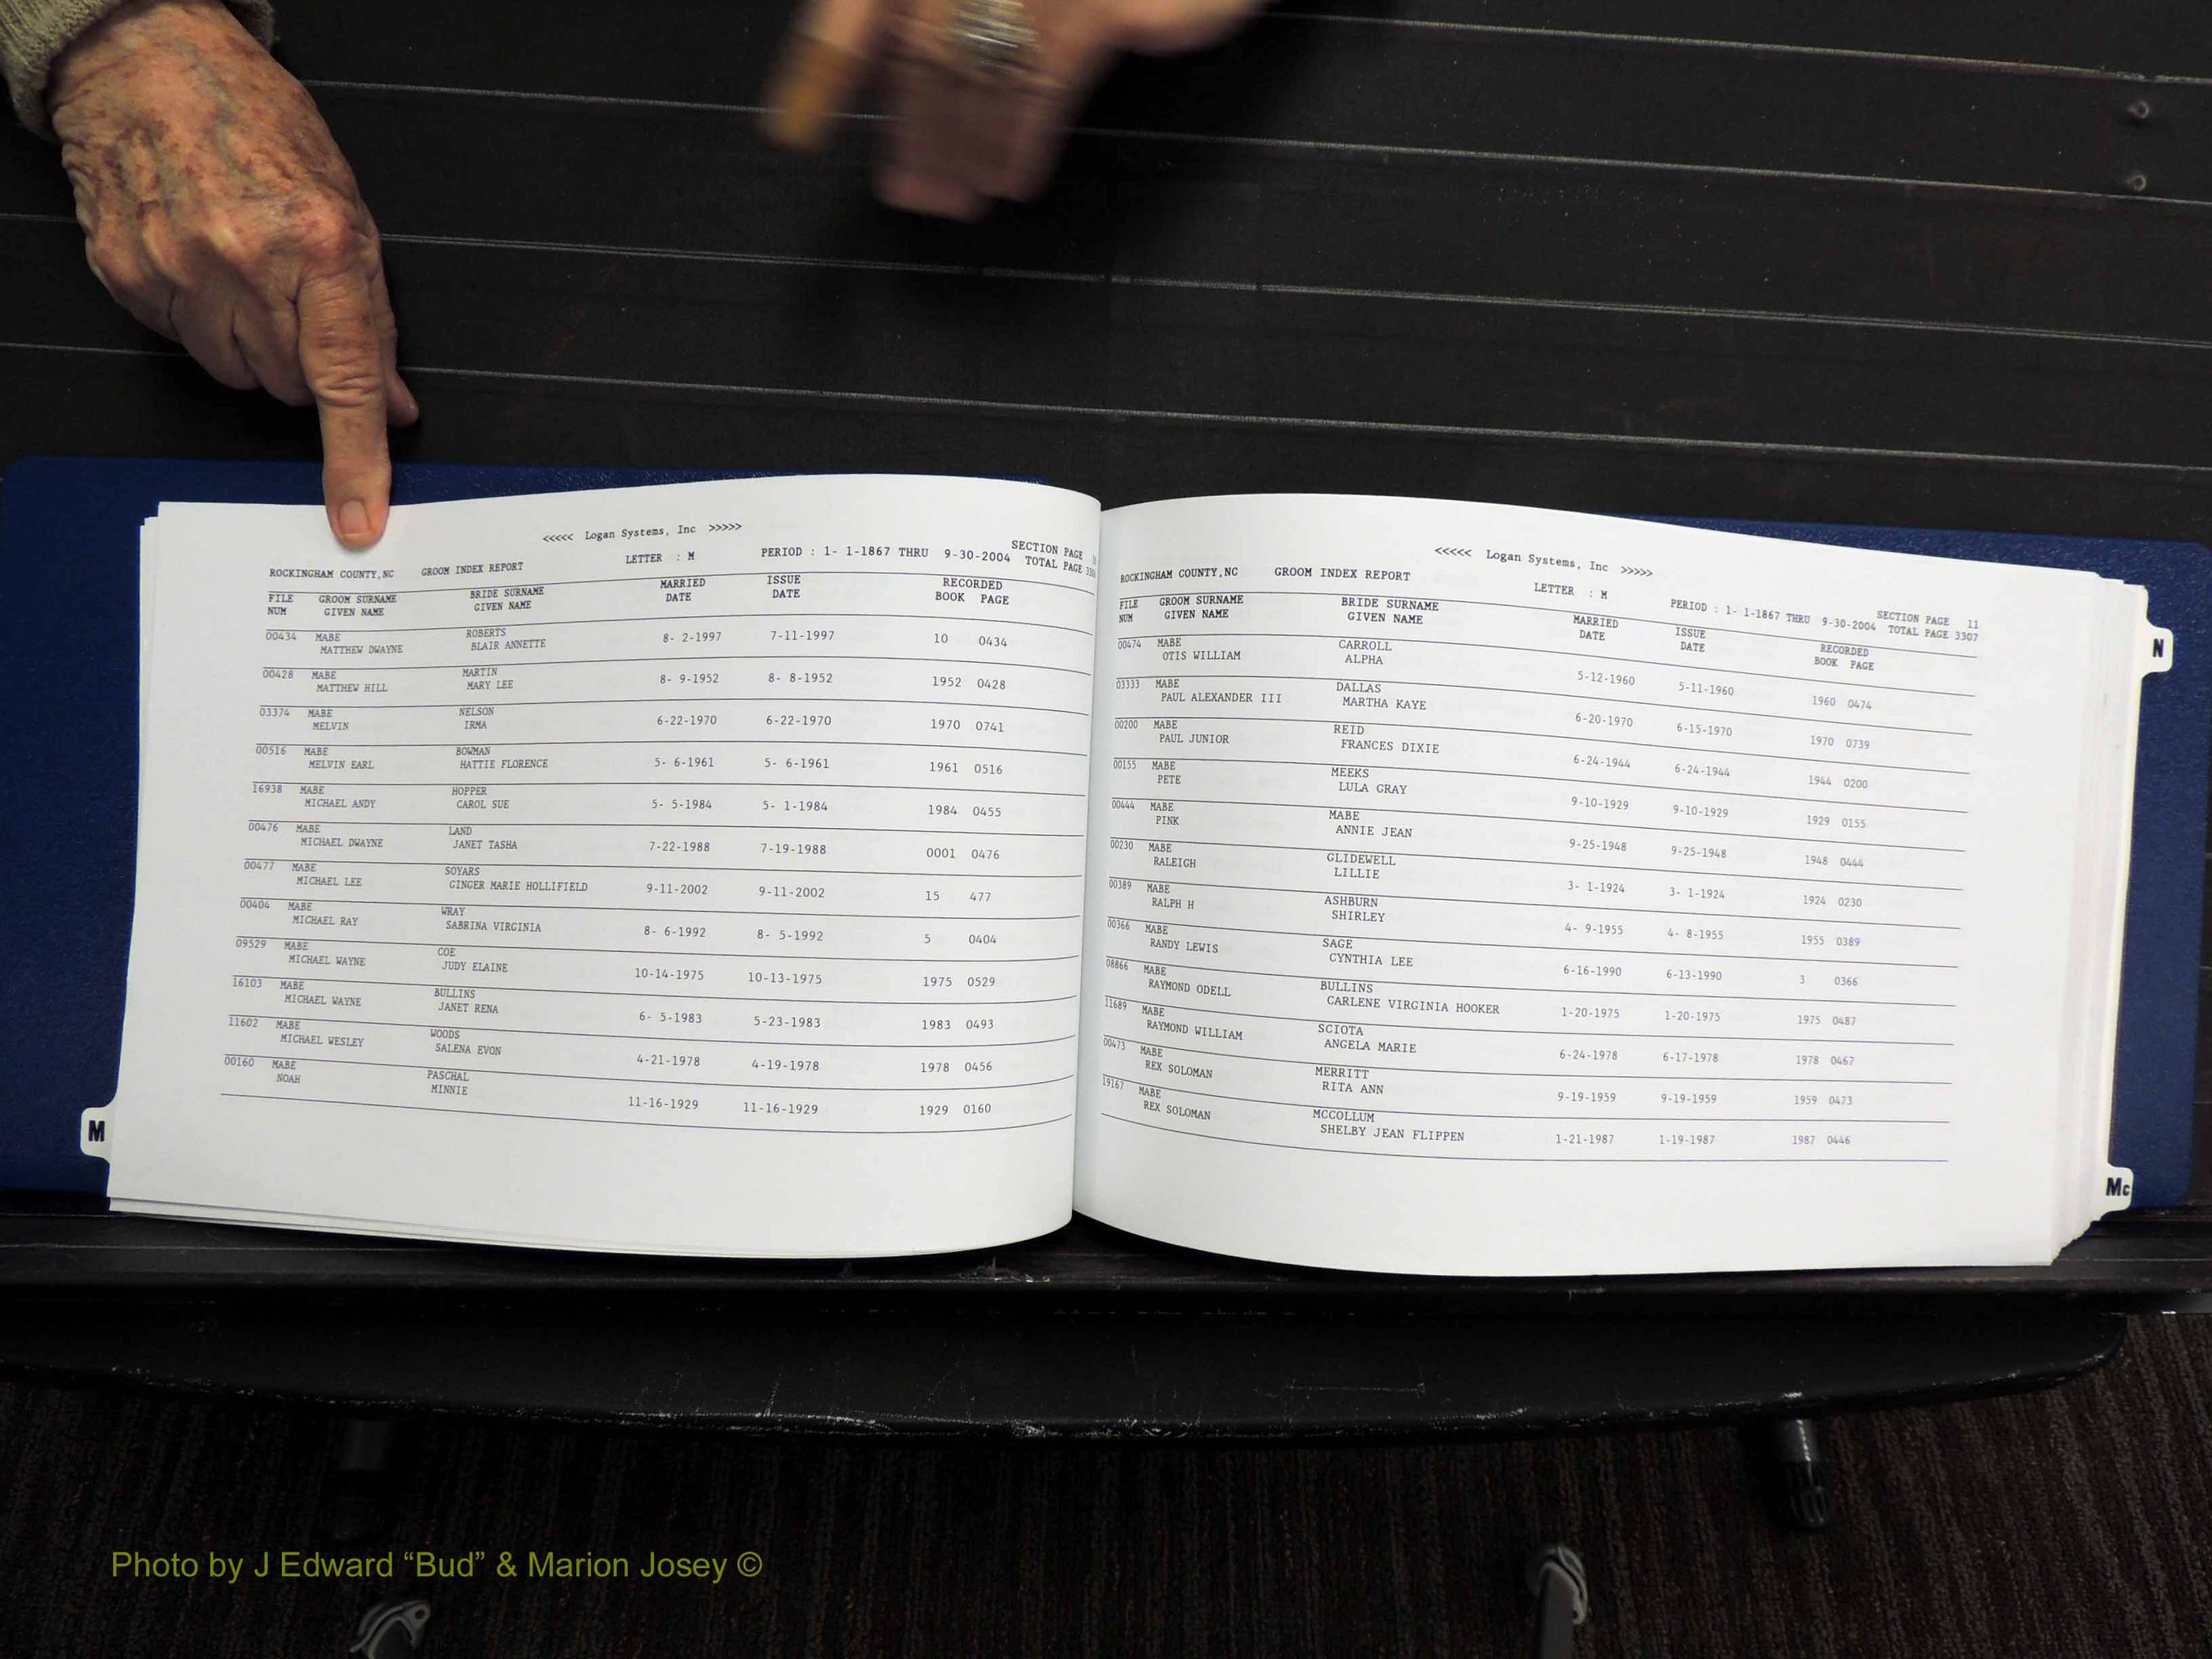 <<<<< Logan Systems, Inc >>>>>
SECTION PAGE
ROCKINGHAM COUNTY,NC GROOM INDEX REPORT LETTER : M PERIOD : 1- 1-1867 THRU 9-30-2004 TOTAL PAGE
FILE GROOM SURNAME BRIDE SURNAME MARRIED ISSUE RECORDED
NUM GIVEN NAME GIVEN NAME DATE DATE BOOK PAGE
00434 MABE ROBERTS 8- 2-1997 7-11-1997 10 0434
MATTHEW DWAYNE BLAIR ANNETTE
00428 MABE MARTIN 8- 9-1952 8- 8-1952 1952 0428
MATTHEW HILL MARY LEE
03374 MABE NELSON 6-22-1970 6-22-1970 1970 0741
MELVIN IRMA
00516 MABE BOWMAN 5- 6-1961 5- 6-1961 1961 0516
MELVIN EARL HATTIE FLORENCE
16938 MABE HOPPER 5- 5-1984 5- 1-1984 1984 0455
MICHAEL ANDY CAROL SUE
00476 MABE LAND 7-22-1988 7-19-1988 0001 0476
MICHAEL DWAYNE JANET TASHA
00477 MABE SOYARS 9-11-2002 9-11-2002 15 477
MICHAEL LEE GINGER MARIE HOLLIFIELD
00404 MABE WRAY 8- 6-1992 8- 5-1992 5 0404
MICHAEL RAY SABRINA VIRGINIA
09529 MABE COE 10-14-1975 10-13-1975 1975 0529
MICHAEL WAYNE JUDY ELAINE
16103 MABE BULLINS 6- 5-1983 5-23-1983 1983 0493
MICHAEL WAYNE JANET RENA
11602 MABE WOODS 4-21-1978 4-19-1978 1978 0456
MICHAEL WESLEY SALENA EVON
00160 MABE PASCHAL 11-16-1929 11-16-1929 1929 0160
NOAH MINNIE
M
<<<<< Logan Systems, Inc >>>>>
SECTION PAGE 11
ROCKINGHAM COUNTY,NC GROOM INDEX REPORT LETTER : M PERIOD : 1- 1-1867 THRU 9-30-2004 TOTAL PAGE 3307
FILE GROOM SURNAME BRIDE SURNAME MARRIED ISSUE RECORDED
NUM GIVEN NAME GIVEN NAME DATE DATE BOOK PAGE
00474 MABE CARROLL 5-12-1960 5-11-1960 1960 0474
OTIS WILLIAM ALPHA
03333 MABE DALLAS 6-20-1970 6-15-1970 1970 0739
PAUL ALEXANDER III MARTHA KAYE
00200 MABE REID 6-24-1944 6-24-1944 1944 0200
PAUL JUNIOR FRANCES DIXIE
00155 MABE MEEKS 9-10-1929 9-10-1929 1929 0155
PETE LULA GRAY
00444 MABE MABE 9-25-1948 9-25-1948 1948 0444
PINK ANNIE JEAN
00230 MABE GLIDEWELL 3- 1-1924 3- 1-1924 1924 0230
RALEIGH LILLIE
00389 MABE ASHBURN 4- 9-1955 4- 8-1955 1955 0389
RALPH H SHIRLEY
00366 MABE SAGE 6-16-1990 6-13-1990 3 0366
RANDY LEWIS CYNTHIA LEE
08866 MABE BULLINS 1-20-1975 1-20-1975 1975 0487
RAYMOND ODELL CARLENE VIRGINIA HOOKER
11689 MABE SCIOTA 6-24-1978 6-17-1978 1978 0467
RAYMOND WILLIAM ANGELA MARIE
00473 MABE MERRITT 9-19-1959 9-19-1959 1959 0473
REX SOLOMAN RITA ANN
19167 MABE MCCOLLUM 1-21-1987 1-19-1987 1987 0446
REX SOLOMAN SHELBY JEAN FLIPPEN
N
Mc
Photo by J Edward “Bud” & Marion Josey ©